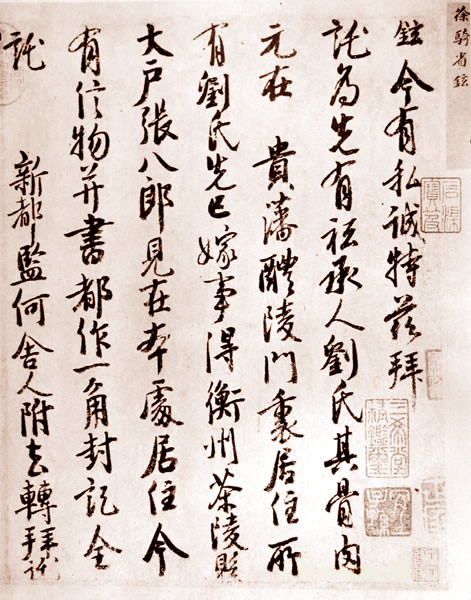 徐騎省鉉
鉉今有私誠特茲拜
託為先有祗承人劉氏其骨肉
元在 貴藩醴陵門裏居住所
有劉氏先已嫁事得衡州茶陵縣
大户張八郎見在本處居住今
有信物并書都作一角封記全
託
新都監何舍人附去轉拜託
三希堂精鑑璽
宜子孫